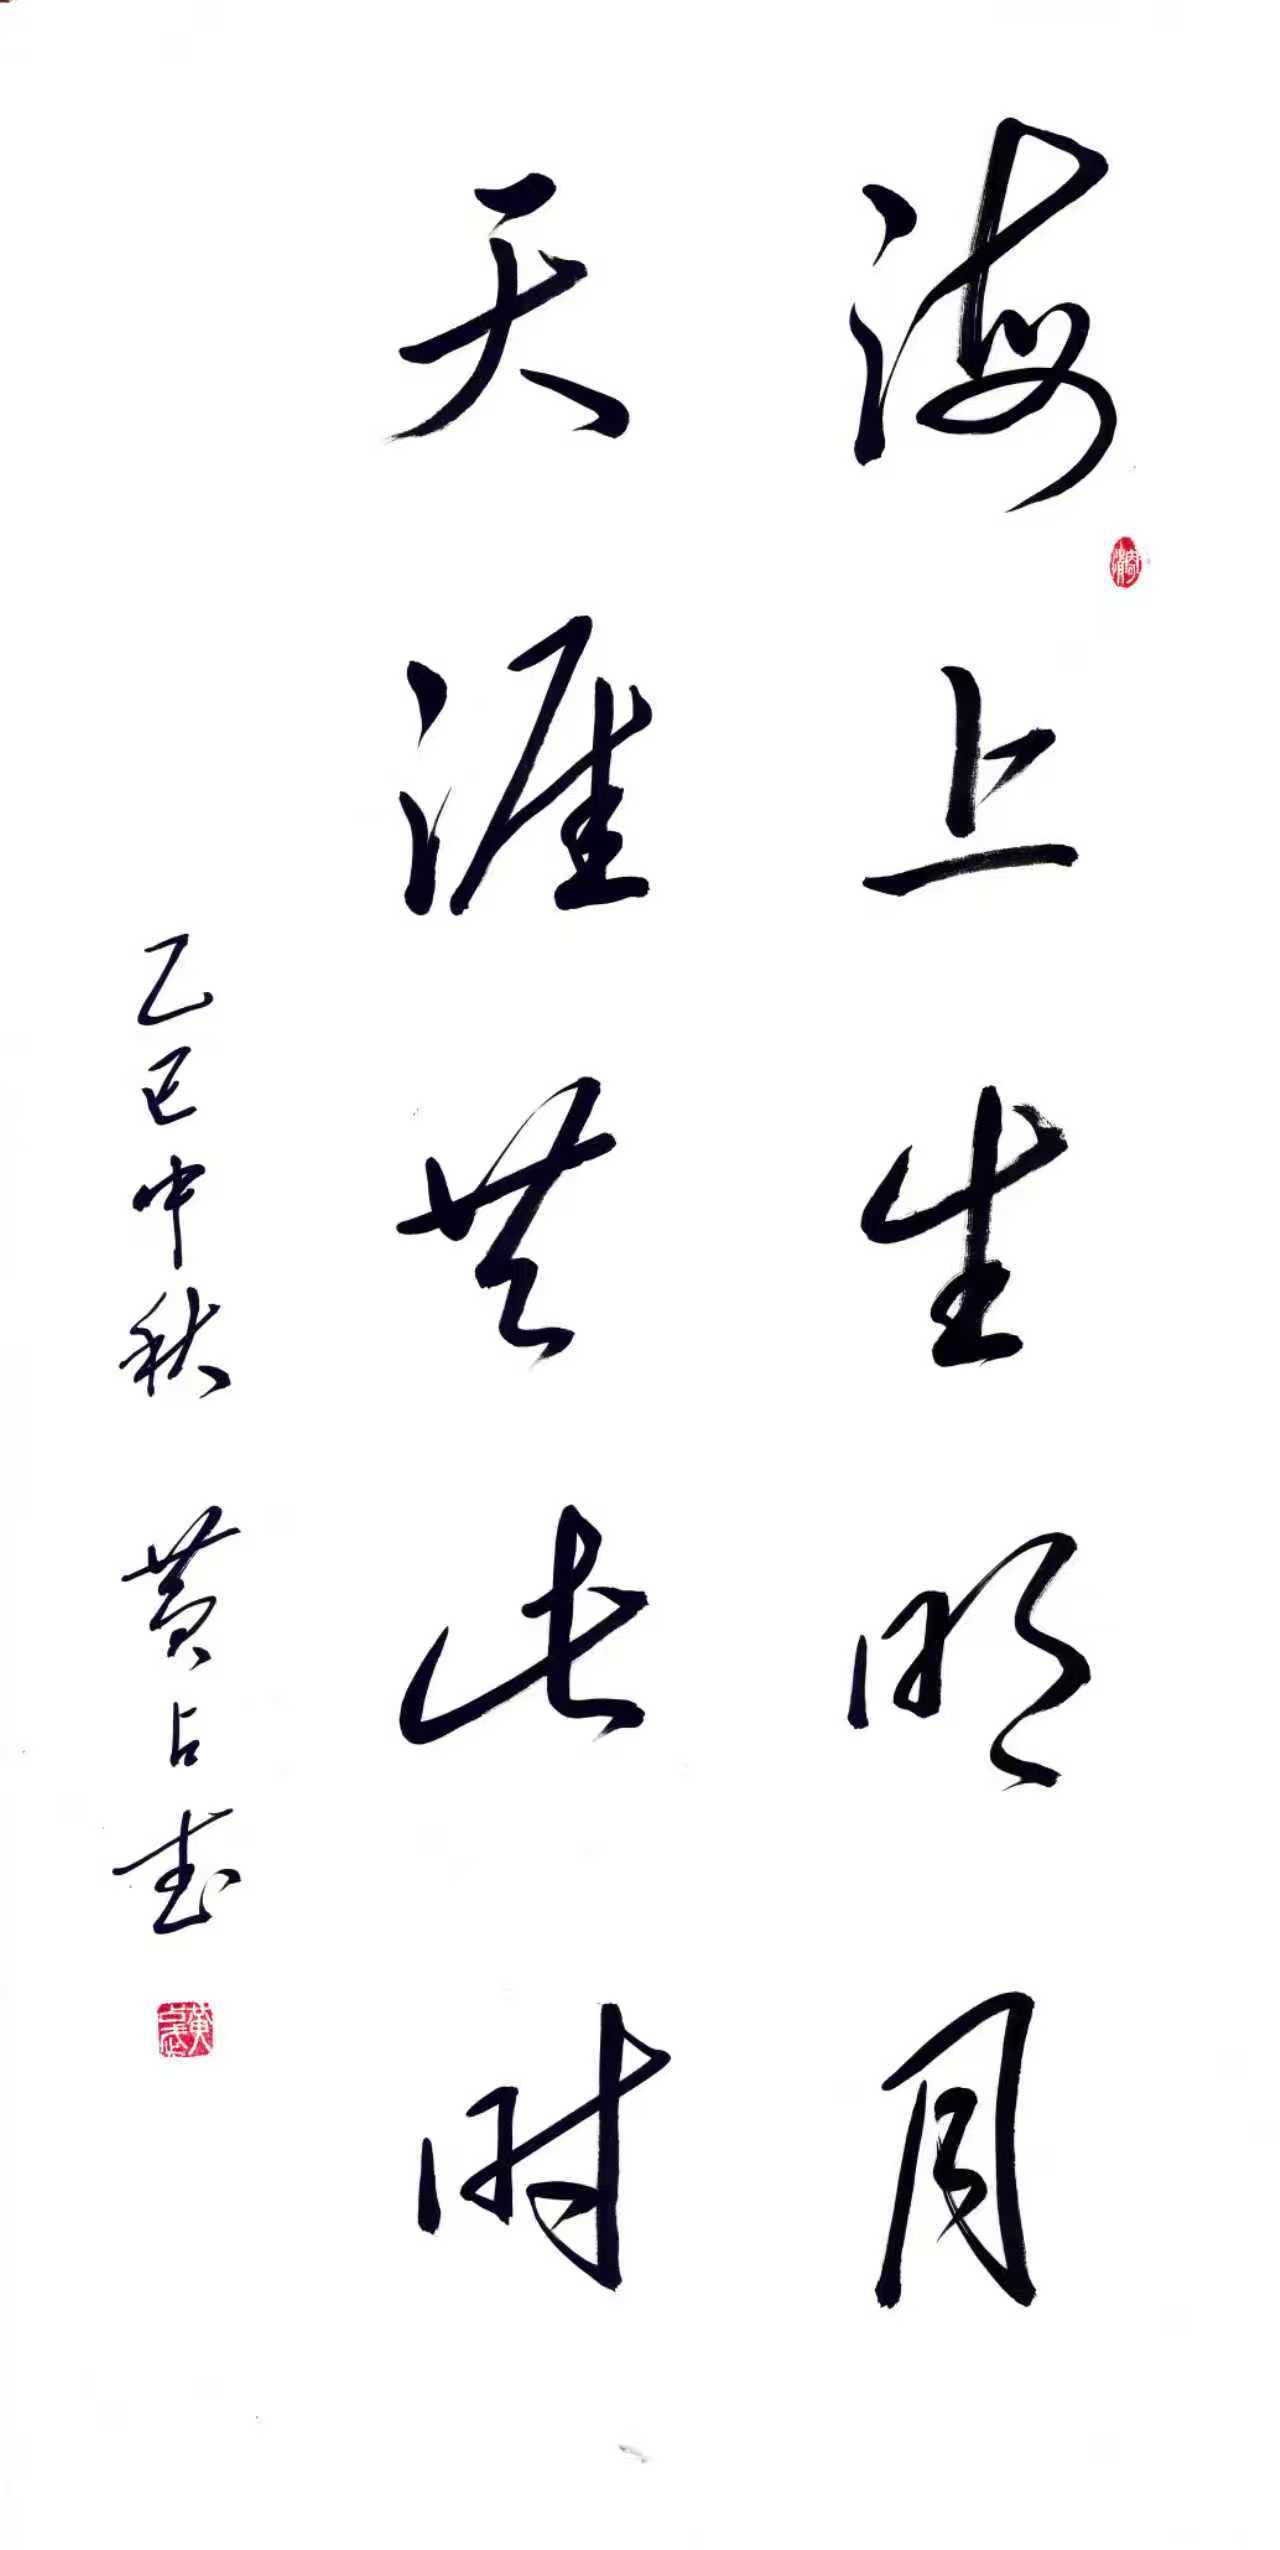 海上生明月
天涯共此时
乙巳中秋 黄占武